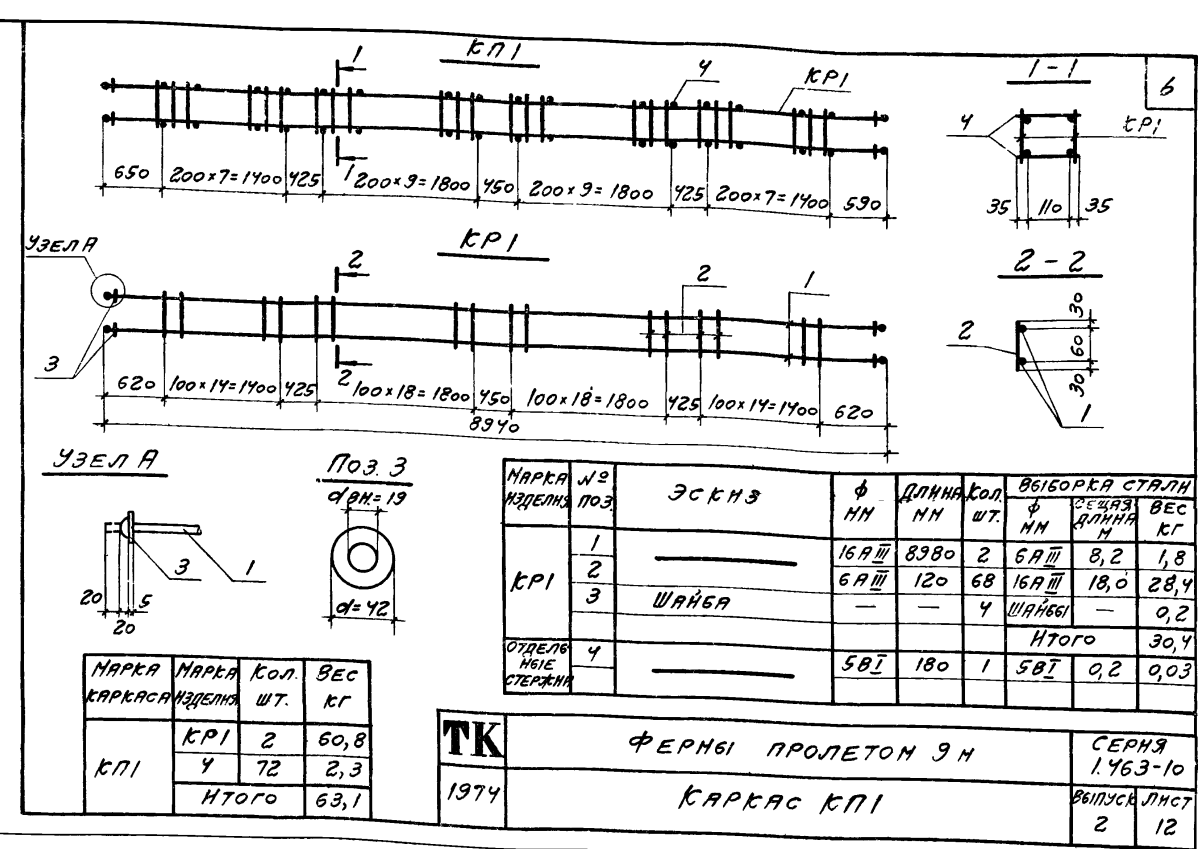 КП1
6
1
1
4
КР1
650
200×7=1400
425
200×9=1800
450
200×9=1800
425
200×7=1400
590
1-1
4
КР1
35
110
35
КР1
УЗЕЛ А
3
2
2
2
1
620
100×14=1400
425
100×18=1800
450
100×18=1800
425
100×14=1400
620
8940
2-2
2
30
60
30
1
УЗЕЛ А
3
1
20
20
5
ПОЗ. 3
dвн.=19
d=42
МАРКА ИЗДЕЛИЯ
№ ПОЗ.
ЭСКИЗ
ф ММ
ДЛИНА ММ
КОЛ. ШТ.
ВЫБОРКА СТАЛИ
ф ММ
ОБЩАЯ ДЛИНА М
ВЕС КГ
КР1
1
16АIII
8980
2
6АIII
8,2
1,8
2
6АIII
120
68
16АIII
18,0
28,4
3
ШАЙБА
—
—
4
ШАЙБЫ
—
0,2
ИТОГО
30,4
ОТДЕЛЬНЫЕ СТЕРЖНИ
4
5ВI
180
1
5ВI
0,2
0,03
МАРКА КАРКАСА
МАРКА ИЗДЕЛИЯ
КОЛ. ШТ.
ВЕС КГ
КП1
КР1
2
60,8
4
72
2,3
ИТОГО
63,1
ТК
1974
ФЕРМЫ ПРОЛЕТОМ 9 М
КАРКАС КП1
СЕРИЯ
1.463-10
ВЫПУСК
2
ЛИСТ
12